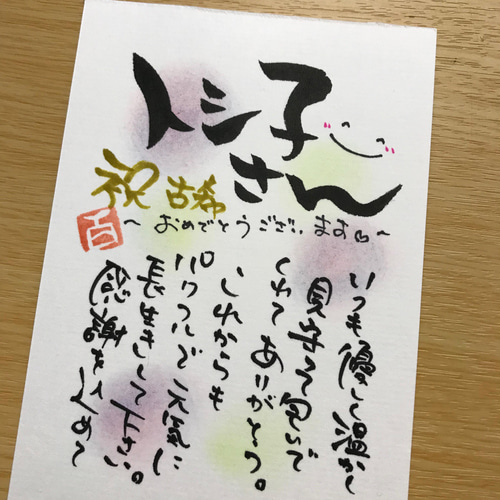 トシ子
さん
祝 古希
〜おめでとうございます〜
いつも優しく温かく
見守って包んで
くれてありがとう。
これからも
パワフルで元気に
長生きして下さい。
感謝を込めて